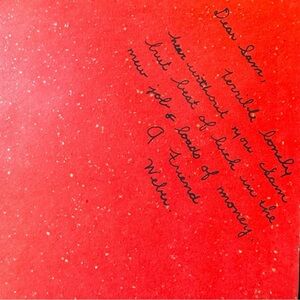 Dear Sam,
Terrible lonely
hear without you Sam
but best of luck in the
new job & loads of money
A Friend
Weber